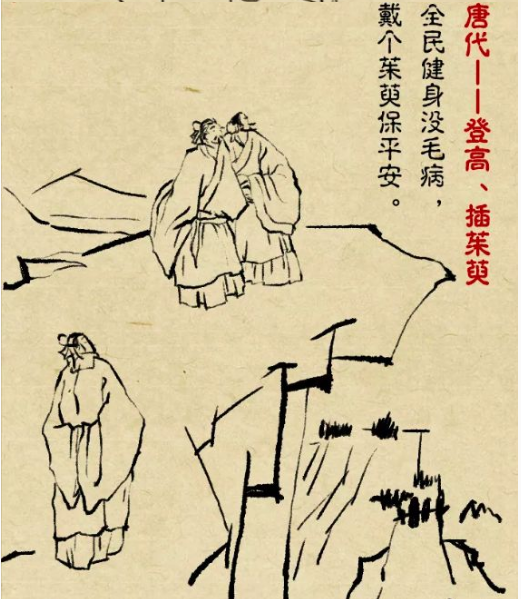 唐代——登高、插茱萸
全民健身没毛病，
戴个茱萸保平安。